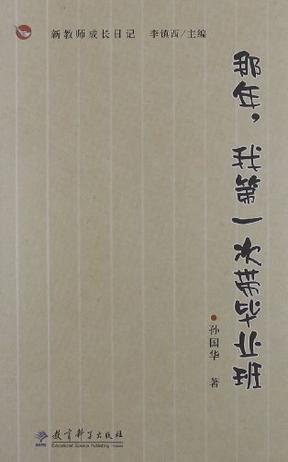 新教师成长日记 李镇西/主编
那年，我第一次带毕业班
孙国华 著
教育科学出版社
Educational Science Publishing House